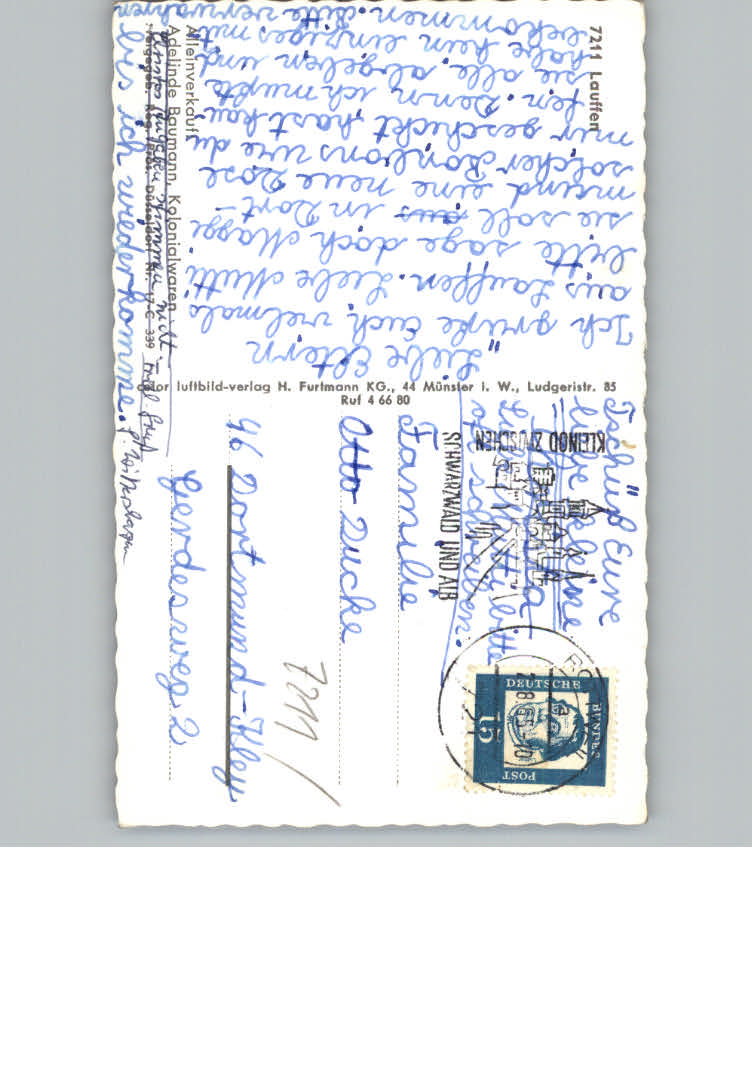 7211 Lauffen
Alleinverkauf:
Adelinde Baumann, Kolonialwaren
color luftbild-verlag H. Furtmann KG., 44 Münster i. W., Ludgeristr. 85
Ruf 4 66 80
Liebe Eltern
Ich grüße Euch vielmals
aus Lauffen. Liebe Mutti
bitte sage doch Magge
sie soll aus in Dort-
mund eine neue Dose
solcher Bonbons wie du
mir geschickt hast kau-
fen. Denn ich mußte
sie alle abgeben und
habe kein einziges mit
bekommen. Bitte verwahren
bis ich wiederkomme.
Tschüß Eure
liebe kleine
bitte
oft schreiben.
KLEINOD ZWISCHEN
SCHWARZWALD UND ALB
DEUTSCHE
BUNDES
POST
15
Familie
Otto Zucke
46 Dortmund-Kley
Gerdesweg 2
7211